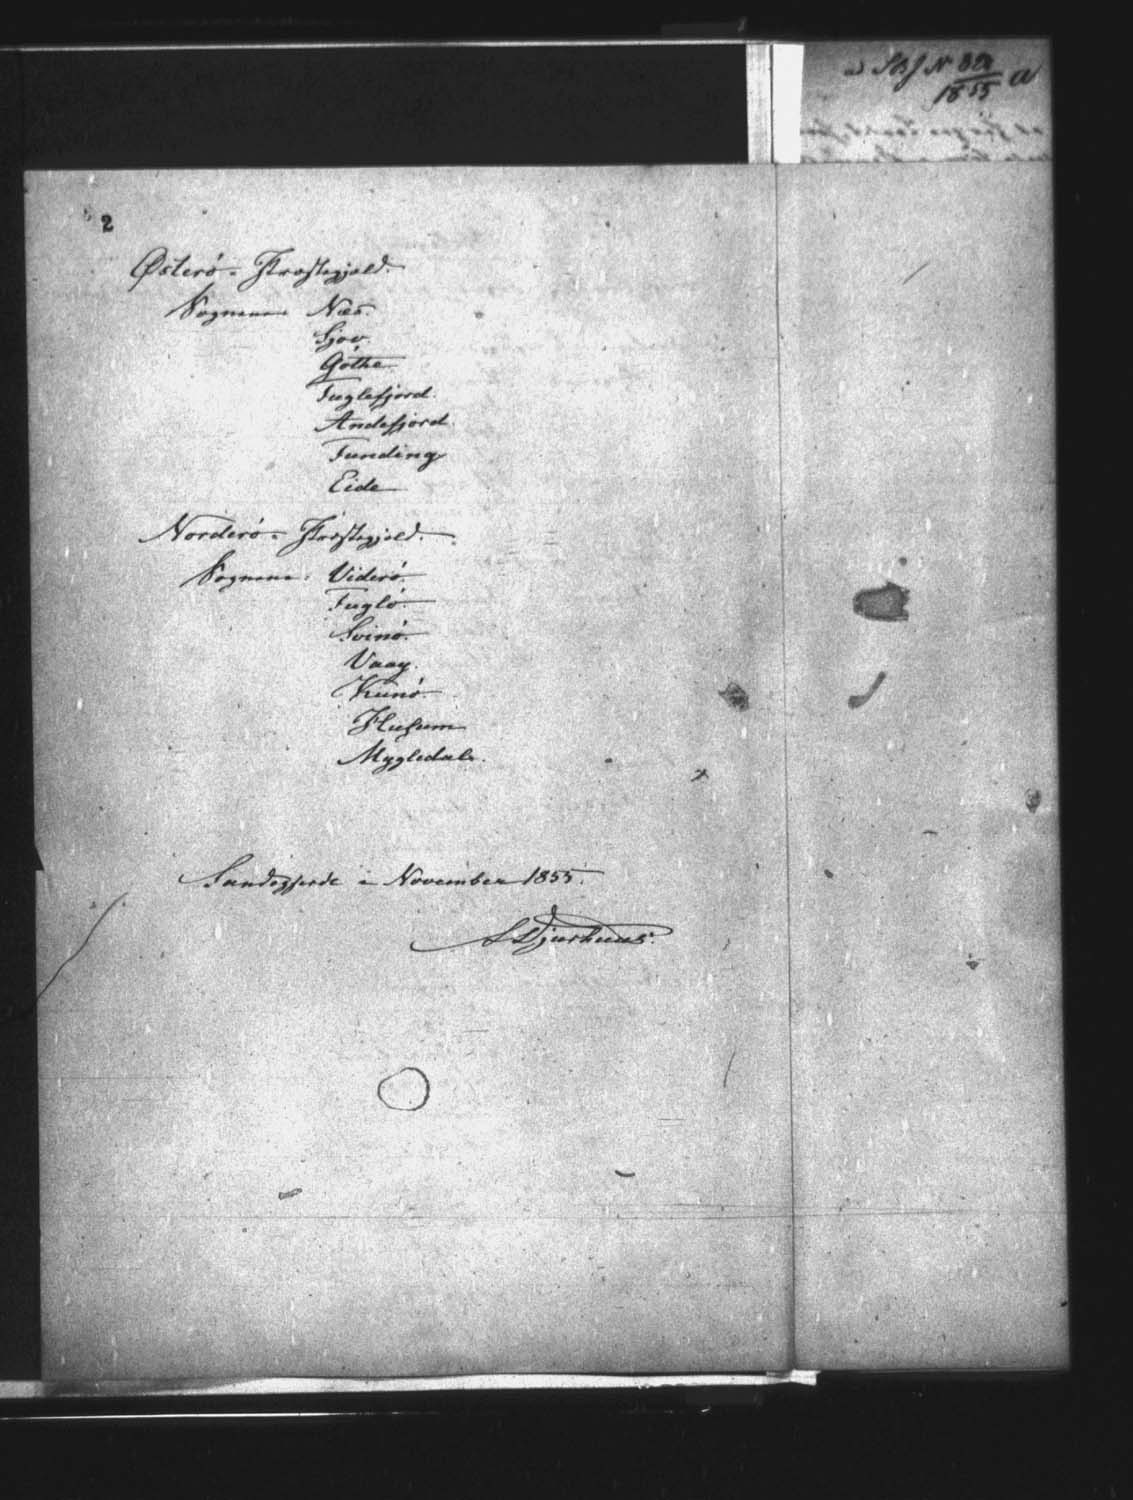 ad SBf N 328/1855 a
2
Østerö-Præstegjeld.
Sognene Næs.
Sjov.
Göthe
Fuglefjord.
Andefjord.
Funding
Eide
Norderö-Præstegjeld.
Sognene: Viderö.
Fuglö.
Svinö.
Vaag.
Kunö.
Husum
Mygledal.
Sandegjerde i November 1855.
Djurhuus.